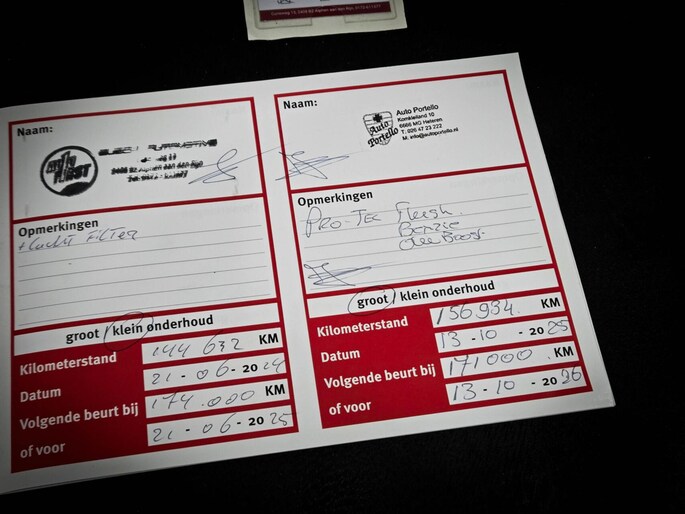 Naam:
auto
FIRST
Opmerkingen
+ Lucht Filter
groot / klein onderhoud
Kilometerstand 144 632 KM
Datum 21 - 06 - 20 24
Volgende beurt bij 174.000 KM
of voor 21 - 06 - 20 25
Naam:
Auto
Portello
Auto Portello
Kornkleiland 10
6666 MG Heteren
T: 026 47 23 222
M: info@autoportello.nl
Opmerkingen
PRO-TEC Flush.
Benzine
Olie Boost.
groot / klein onderhoud
Kilometerstand 156934. KM
Datum 13 - 10 - 20 25
Volgende beurt bij 171000 KM
of voor 13 - 10 - 20 26